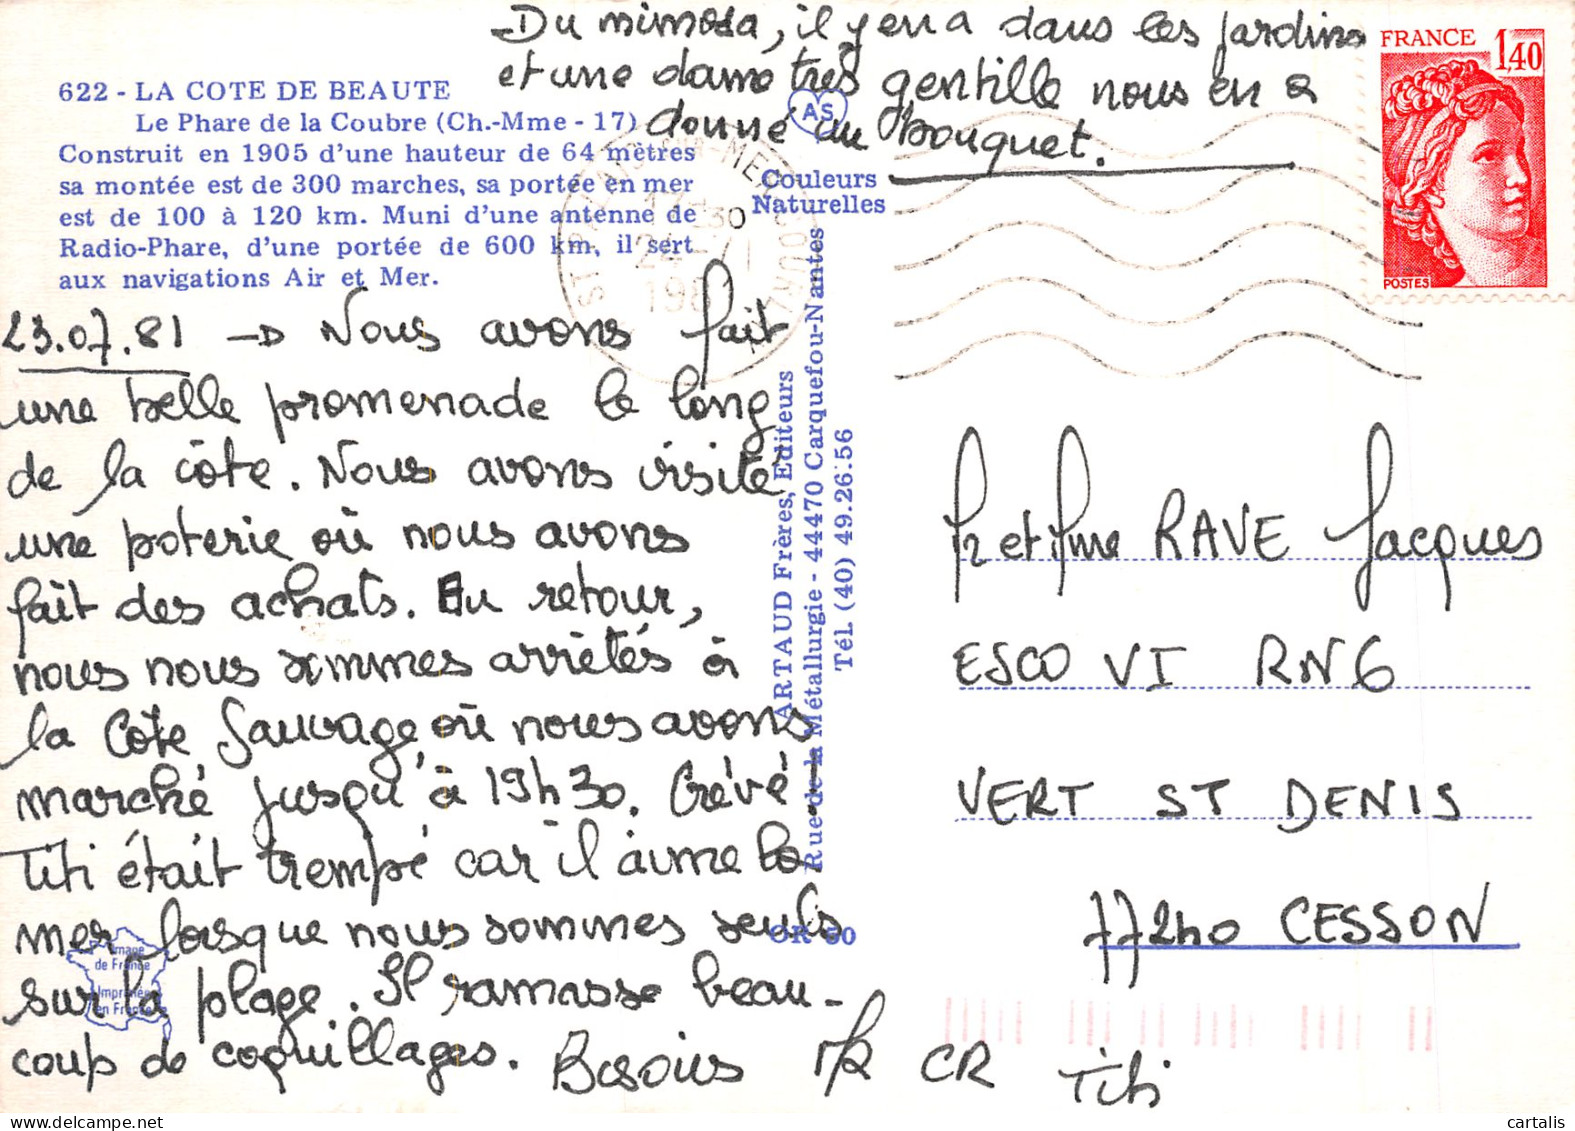 Du mimosa, il y en a dans les jardins
et une dame très gentille nous en a
donné un bouquet.
622 - LA COTE DE BEAUTE
Le Phare de la Coubre (Ch.-Mme - 17)
Construit en 1905 d'une hauteur de 64 mètres
sa montée est de 300 marches, sa portée en mer
est de 100 à 120 km. Muni d'une antenne de
Radio-Phare, d'une portée de 600 km, il sert
aux navigations Air et Mer.
AS
Couleurs
Naturelles
FRANCE 1,40
POSTES
23.07.81 → Nous avons fait
une belle promenade le long
de la côte. Nous avons visité
une poterie où nous avons
fait des achats. Au retour,
nous nous sommes arrêtés à
la Côte Sauvage, où nous avons
marché jusqu'à 19h30. Crévé
Titi était trempé car il aime la
mer lorsque nous sommes seuls
sur la plage. Il ramasse beau-
coup de coquillages. Bisous CR Titi
ARTAUD Frères, Editeurs
Rue de la Métallurgie - 44470 Carquefou-Nantes
Tél. (40) 49.26.56
OR 50
Image
de France
Imprimée
en France
Mr et Mme RAVE Jacques
ESCO VI RN6
VERT ST DENIS
77240 CESSON
cartalis